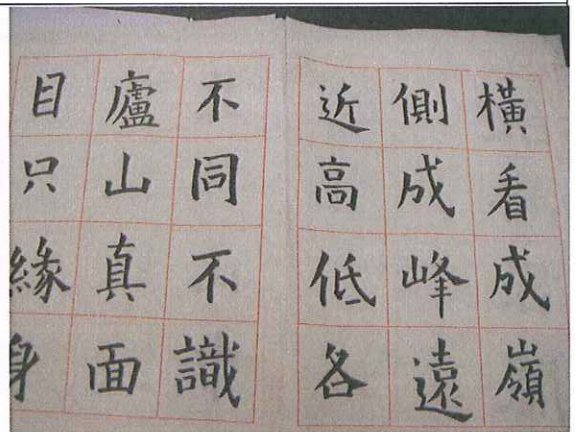 橫看成嶺
側成峰遠
近高低各
不同不識
廬山真面
目只緣身